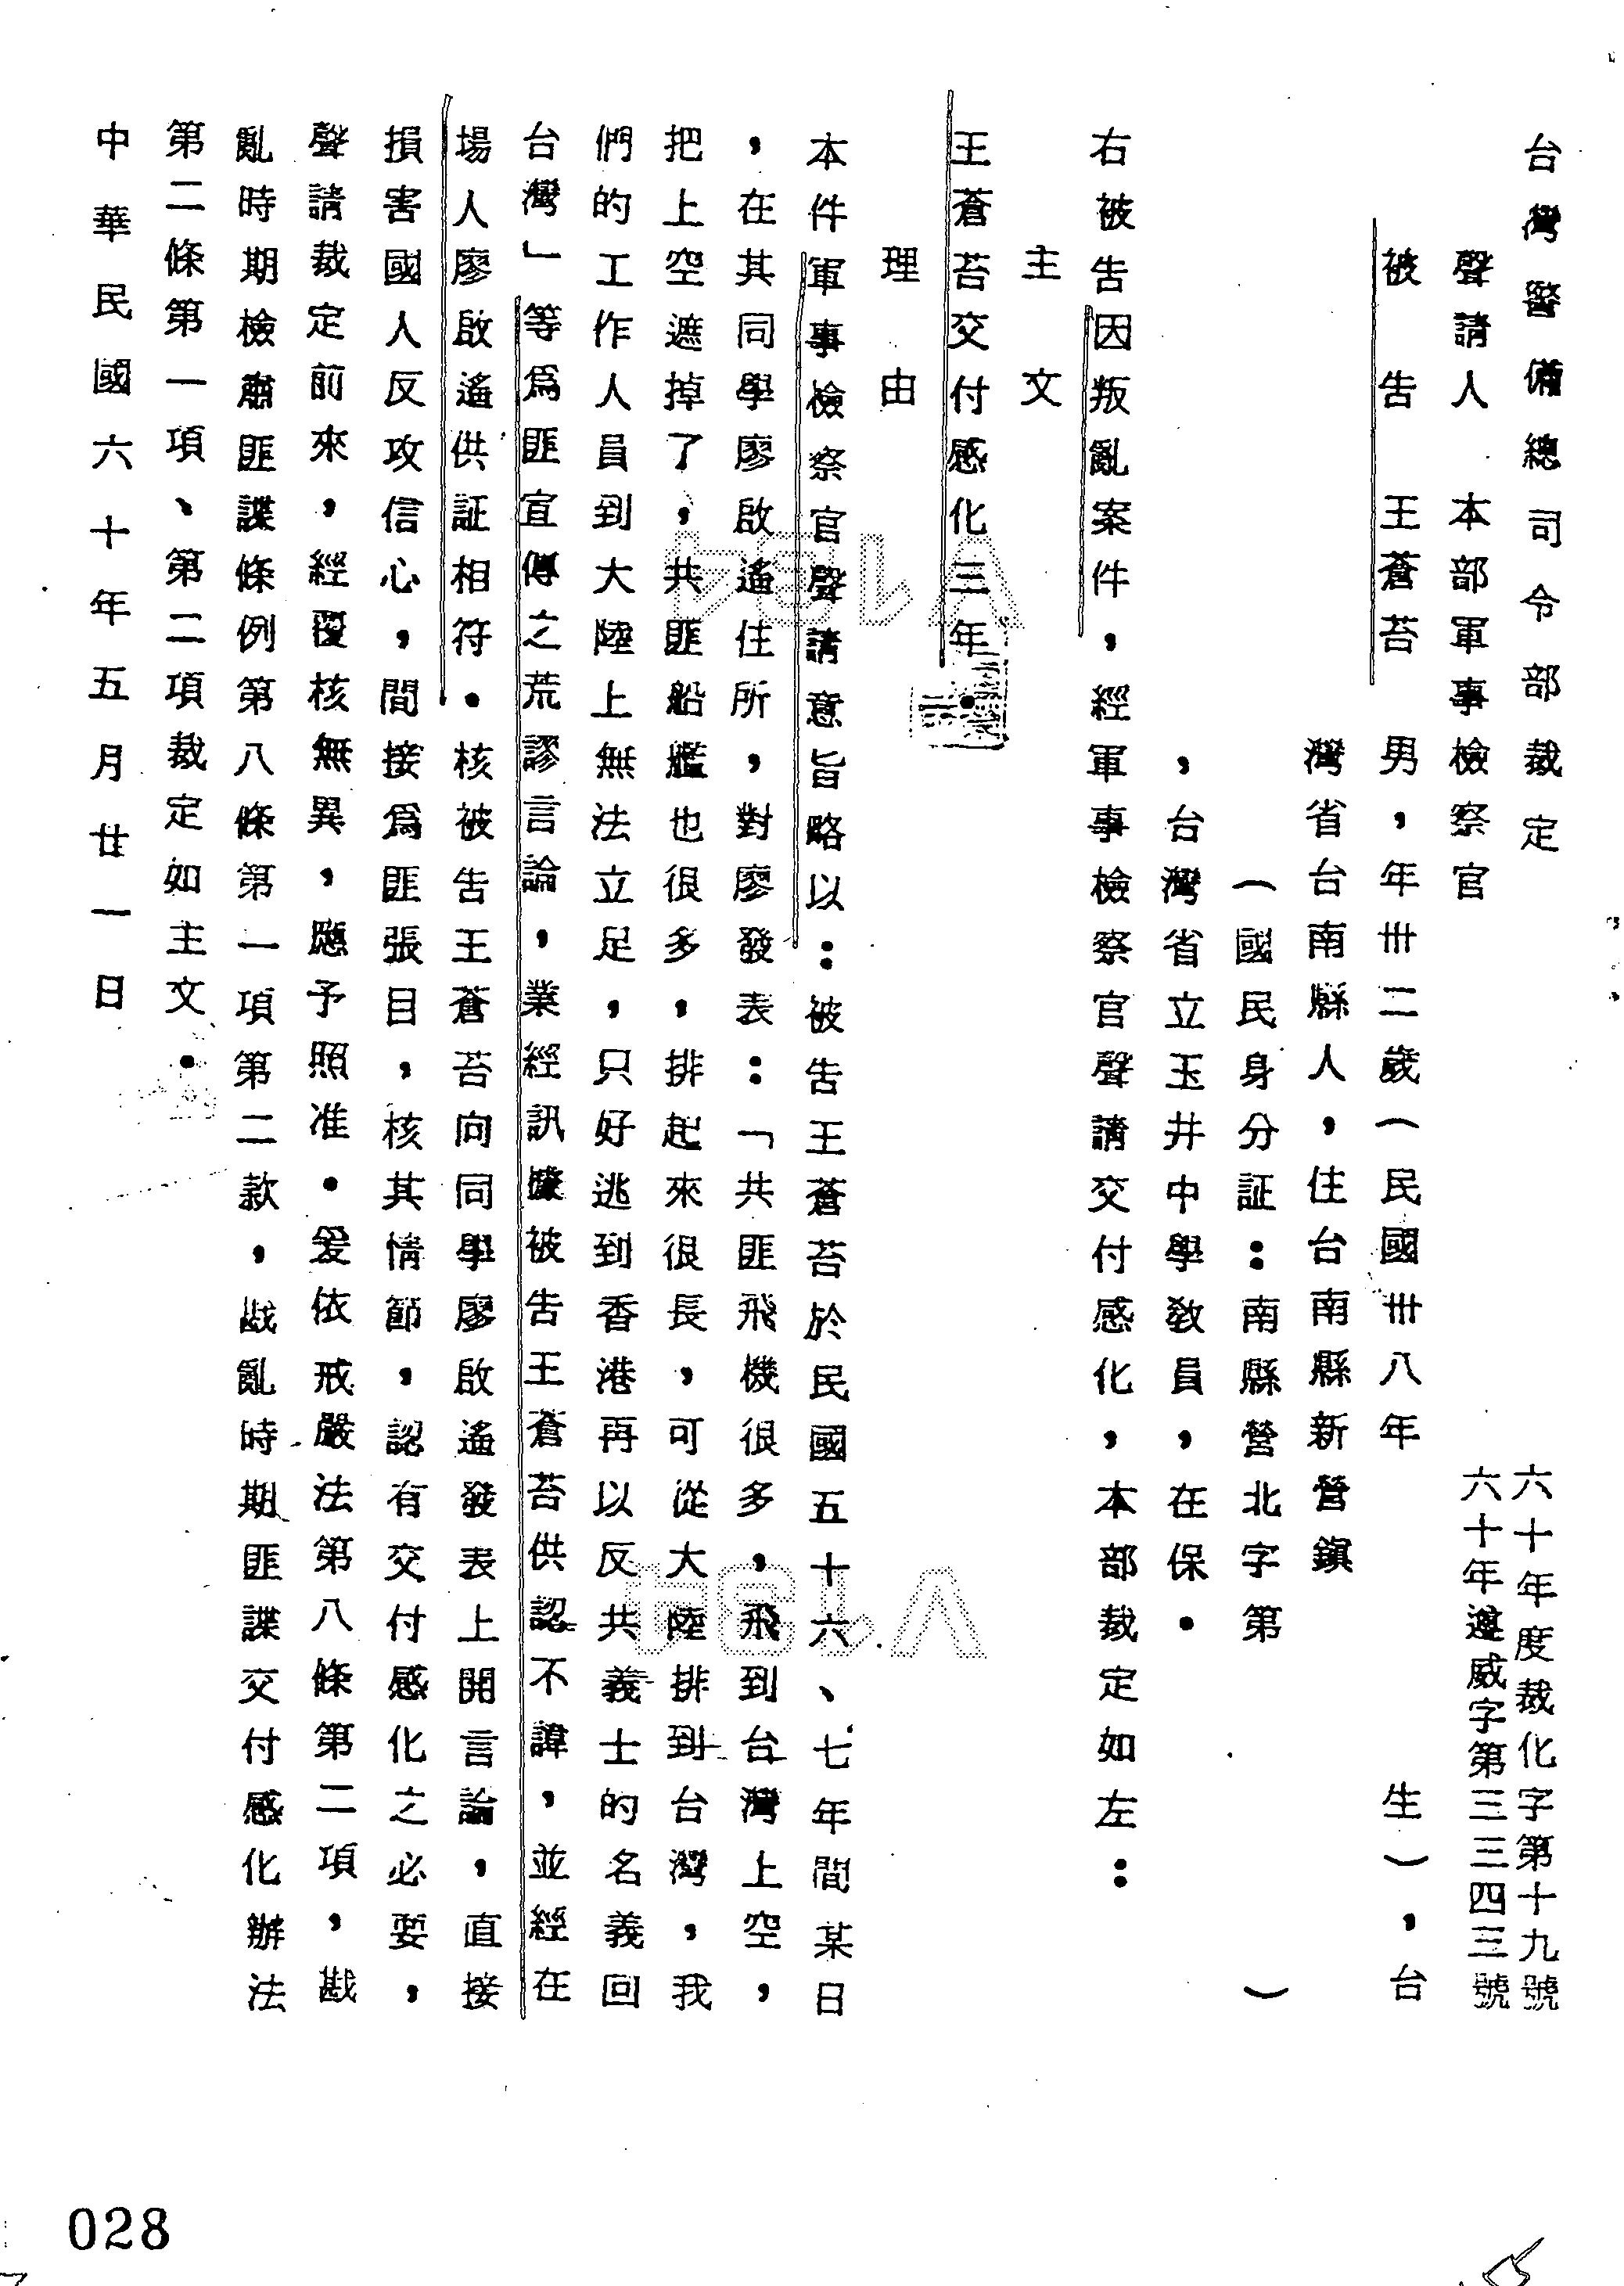 台灣警備總司令部裁定
六十年度裁化字第十九號
六十年遵威字第三三四三號
聲請人 本部軍事檢察官
被告 王蒼苔 男，年卅二歲（民國卅八年 生），台
灣省台南縣人，住台南縣新營鎮
（國民身分証：南縣營北字第 ）
，台灣省立玉井中學教員，在保．
右被告因叛亂案件，經軍事檢察官聲請交付感化，本部裁定如左：
主文
王蒼苔交付感化三年．
理由
本件軍事檢察官聲請意旨略以：被告王蒼苔於民國五十六、七年間某日
，在其同學廖啟遙住所，對廖發表：「共匪飛機很多，飛到台灣上空，
把上空遮掉了，共匪船艦也很多，排起來很長，可從大陸排到台灣，我
們的工作人員到大陸上無法立足，只好逃到香港再以反共義士的名義回
台灣」等為匪宣傳之荒謬言論，業經訊據被告王蒼苔供認不諱，並經在
場人廖啟遙供証相符．核被告王蒼苔向同學廖啟遙發表上開言論，直接
損害國人反攻信心，間接為匪張目，核其情節，認有交付感化之必要，
聲請裁定前來，經覆核無異，應予照准．爰依戒嚴法第八條第二項，戡
亂時期檢肅匪諜條例第八條第一項第二款，戡亂時期匪諜交付感化辦法
第二條第一項、第二項裁定如主文．
中華民國六十年五月廿一日
028